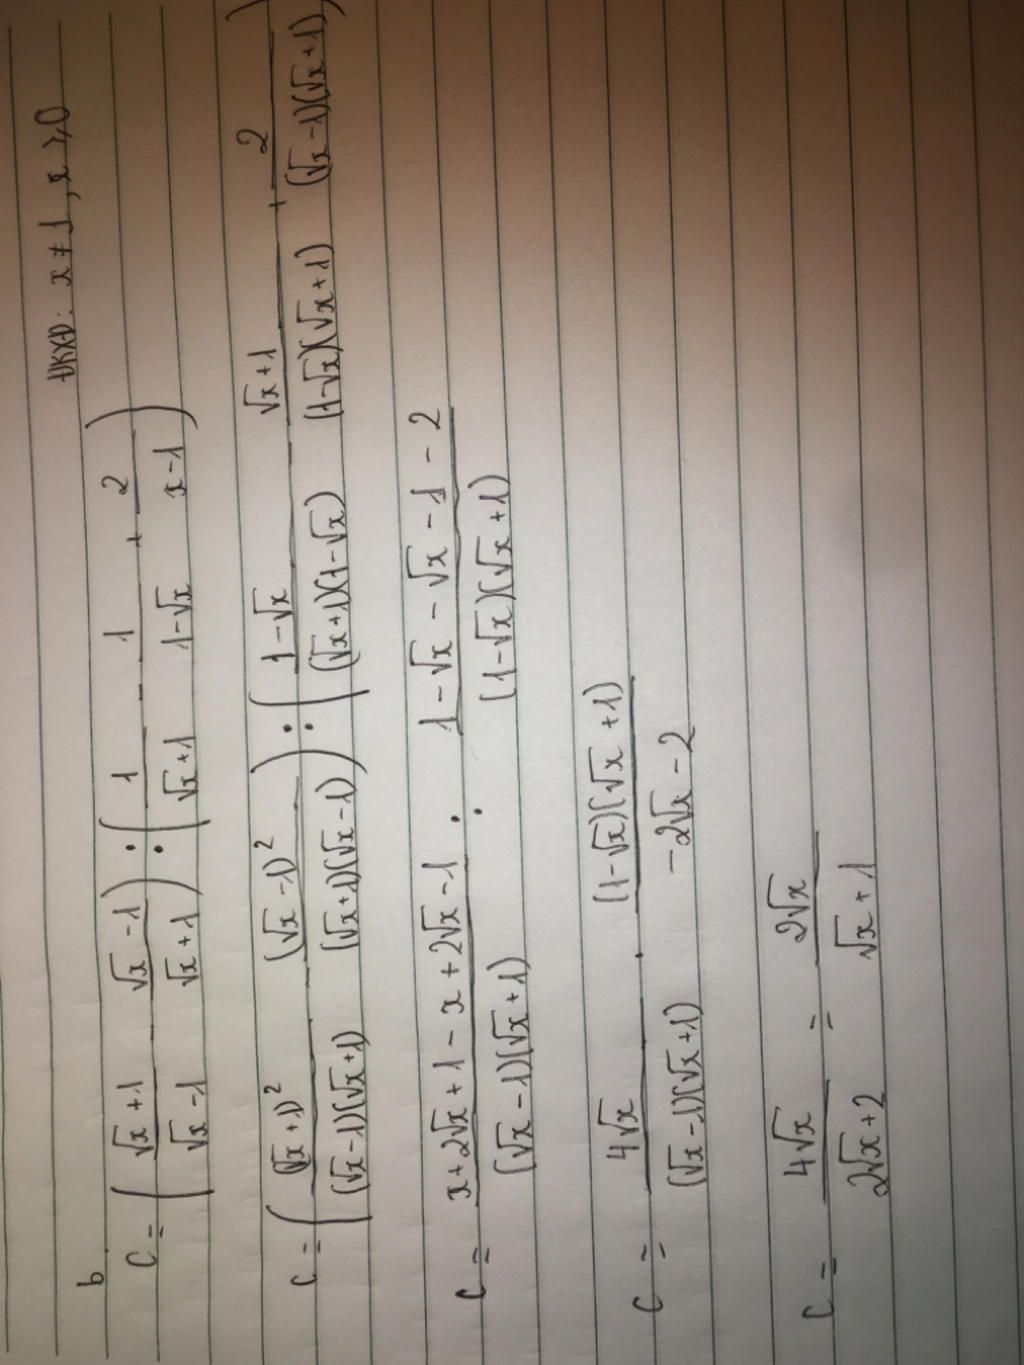 b
ĐKXĐ: x ≠ 1, x ⩾ 0
C = ( (√x + 1)/(√x - 1) - (√x - 1)/(√x + 1) ) : ( 1/(√x + 1) - 1/(1 - √x) + 2/(x - 1) )
C = ( (√x + 1)²/((√x - 1)(√x + 1)) - (√x - 1)²/((√x + 1)(√x - 1)) ) : ( (1 - √x)/((√x + 1)(1 - √x)) - (√x + 1)/((1 - √x)(√x + 1)) + 2/((√x - 1)(√x + 1)) )
C = (x + 2√x + 1 - x + 2√x - 1)/((√x - 1)(√x + 1)) : (1 - √x - √x - 1 - 2)/((1 - √x)(√x + 1))
C = 4√x/((√x - 1)(√x + 1)) . ((1 - √x)(√x + 1))/(-2√x - 2)
C = 4√x/(2√x + 2) = 2√x/(√x + 1)